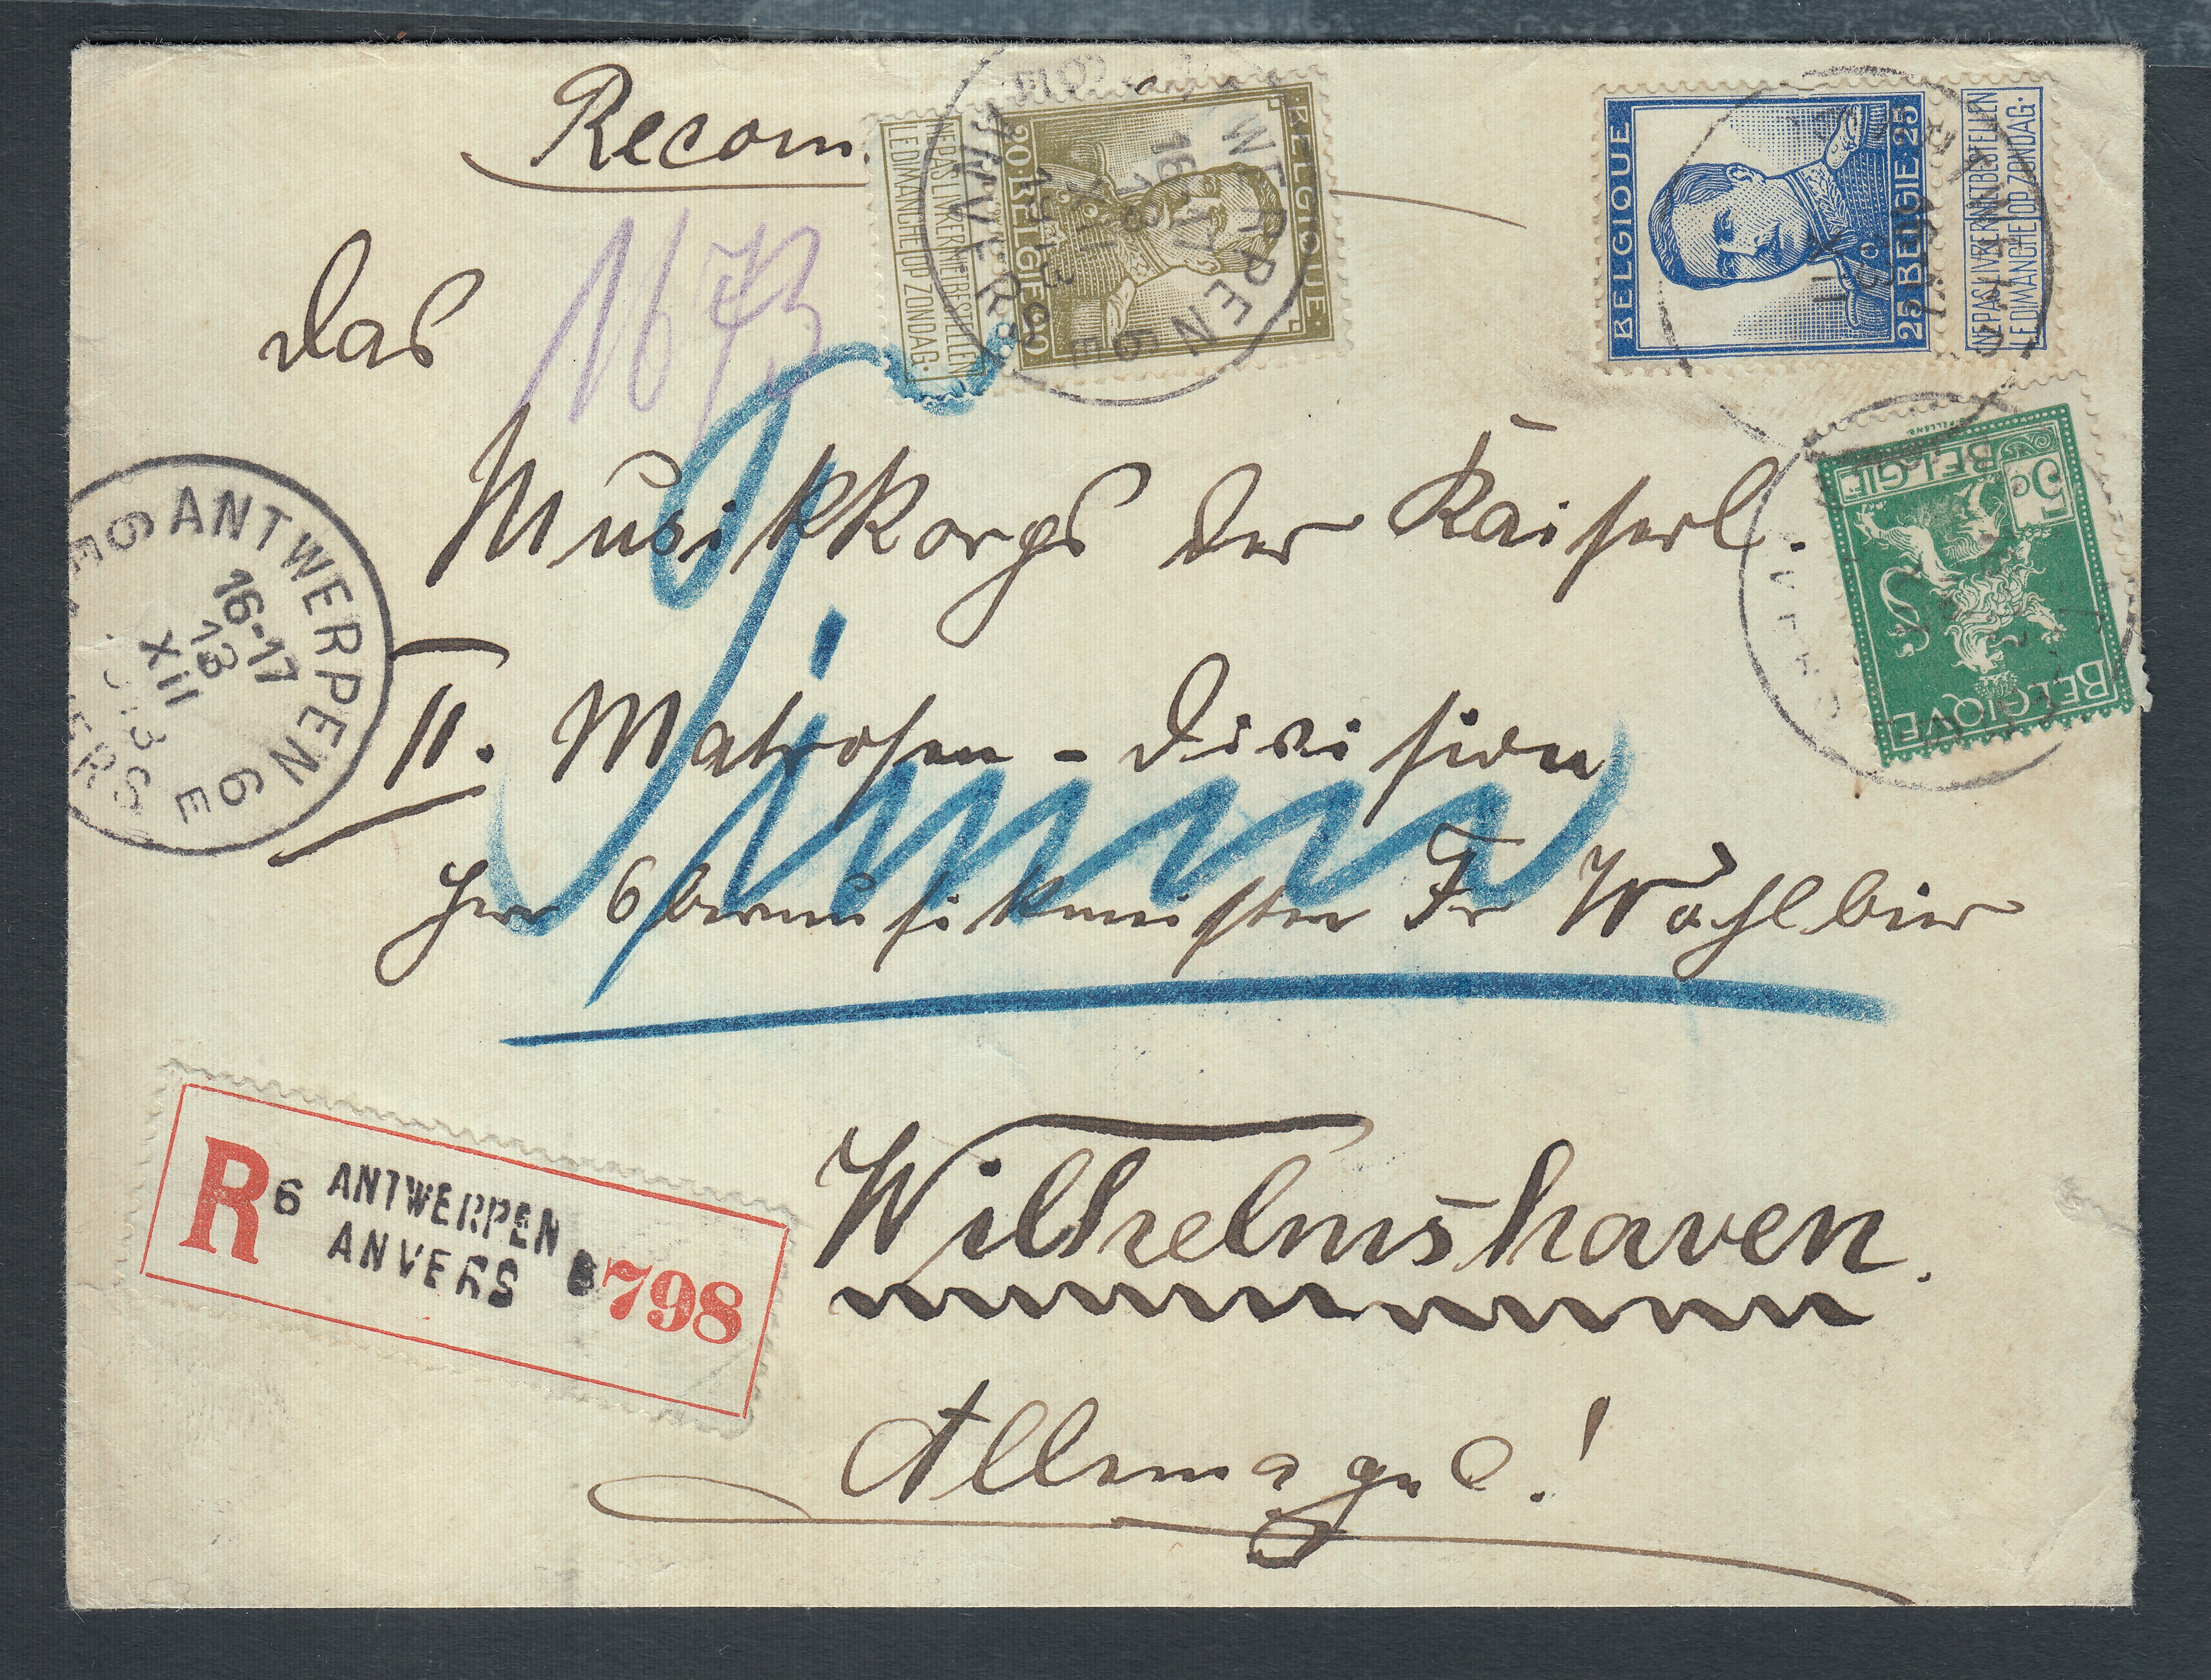 Recom.
NE PAS LIVRER NIET BESTELLEN
LE DIMANCHE OP ZONDAG.
20·BELGIË·20
BELGIQUE
ANTWERPEN 6E
16-17
13
XII
1913
ANVERS
BELGIQUE
25 BELGIË 25
NE PAS LIVRER NIET BESTELLEN
LE DIMANCHE OP ZONDAG·
das
1673
Musikkorps der Kaiserl.
5c
BELGIË
BELGIQVE
6 ANTWERPEN 6E
16-17
13
XII
II. Matrosen-Division
Herr Obermusikmeister Fr Wöhlbier
R 6 ANTWERPEN
ANVERS B 798
Wilhelmshaven.
Allemagne!